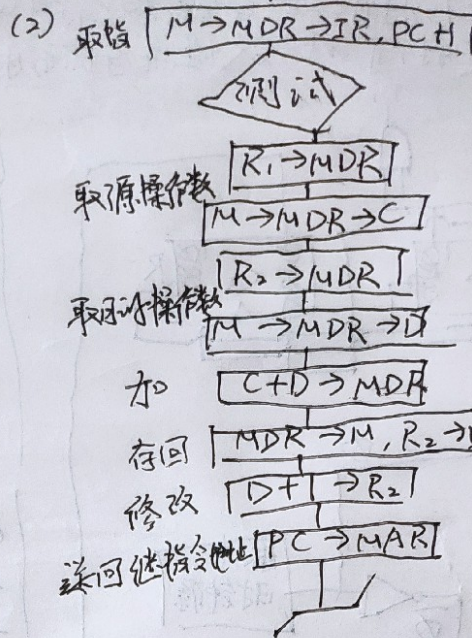 (2) 取指 M→MDR→IR, PC+1
测试
R₁→MDR
取源操作数
M→MDR→C
R₂→MDR
取目的操作数
M→MDR→D
加 C+D→MDR
存回 MDR→M, R₂→
修改 D+1→R₂
送回继指令地址 PC→MAR